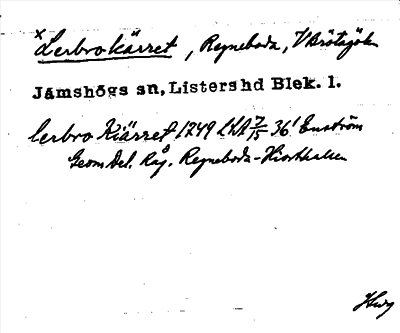 x Lerbrokärret, Regneboda, V Brötsjön
Jämshögs sn, Listershd Blek. l.
lerbro Kiärret 1749 LSA 7/15 36' Enström
Geom Del. Rå. Regneboda-Hiorthalsen
Hwg